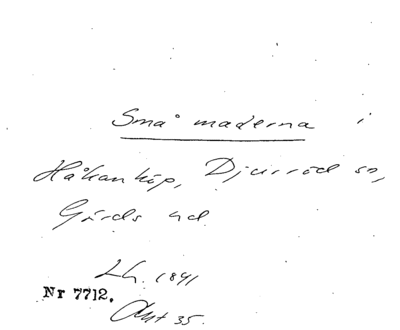 Små maderna i
Håkanköp, Djurröd sn,
Gärds hd
Lh. 1841
Nr 7712.
Akt 35.